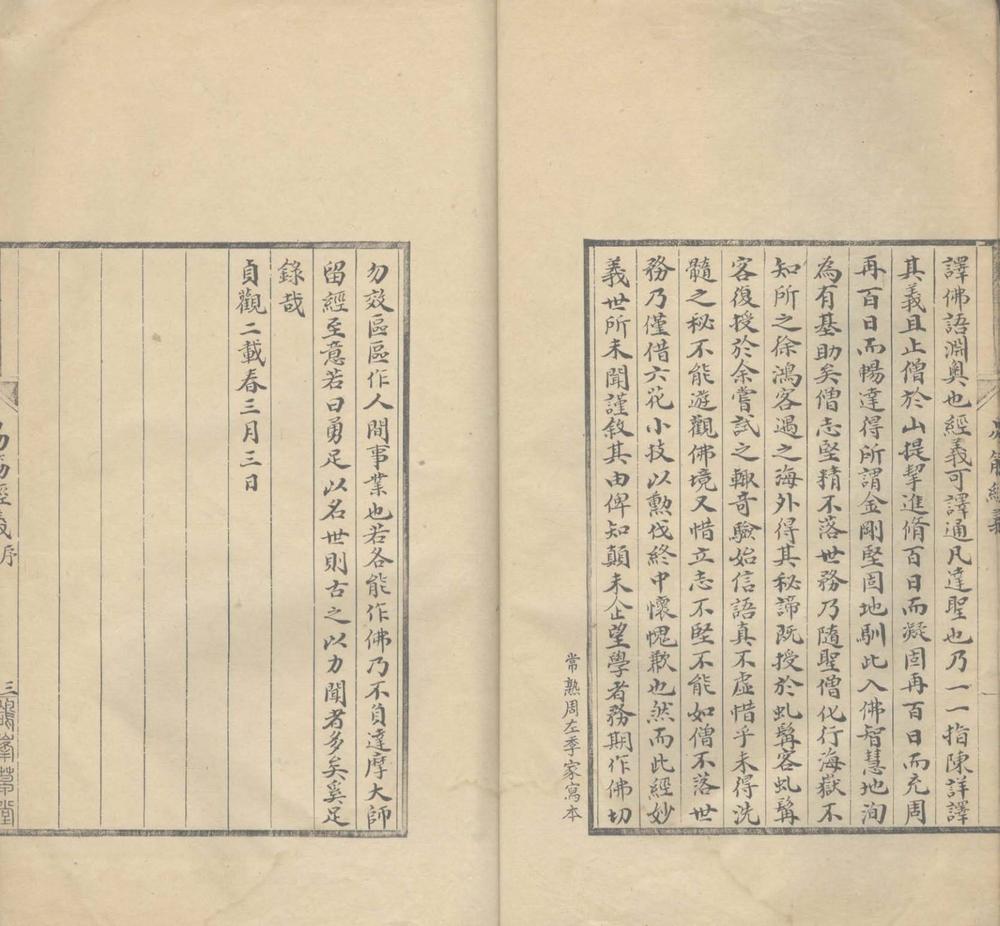 譯佛語淵奧也經義可譯通凡達聖也乃一一指陳詳譯
其義且止僧於山提挈進脩百日而凝固再百日而充周
再百日而暢達得所謂金剛堅固地馴此入佛智慧地洵
為有基助矣僧志堅精不落世務乃隨聖僧化行海嶽不
知所之徐鴻客遇之海外得其秘諦既授於虬髯客虬髯
客復授於余嘗試之輒奇驗始信語真不虛惜乎未得洗
髓之秘不能遊觀佛境又惜立志不堅不能如僧不落世
務乃僅借六花小技以勳伐終中懷愧歉也然而此經妙
義世所未聞謹敘其由俾知顛末企望學者務期作佛切
常熟周左季家寫本
勿效區區作人間事業也若各能作佛乃不負達摩大師
留經至意若曰勇足以名世則古之以力聞者多矣奚足
錄哉
貞觀二載春三月三日
易筋經義序
三
草堂